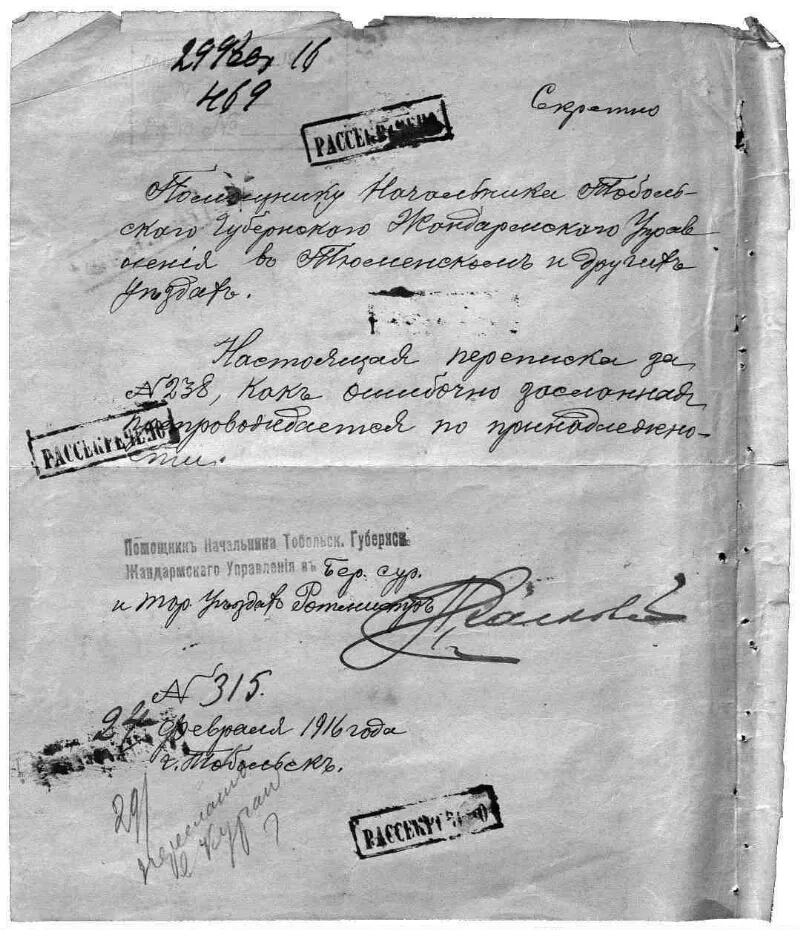 29 Фев 16
469
Секретно
РАССЕКРЕЧЕНО
Помощнику Начальника Тоболь-
скаго Губернскаго Жандармскаго Управ
ленія въ Тюменскомъ и других
уѣздах.
Настоящая переписка за
№ 238, какъ ошибочно засланная
препровождается по принадлежно-
РАССЕКРЕЧЕНО
сти.
Помощникъ Начальника Тобольск. Губернск.
Жандармскаго Управленія въ Бер. Сур.
и Тор. уѣздах Ротмистръ
№ 315.
24 февраля 1916 года
г. Тобольскъ.
29/
переслать
в Курган
РАССЕКРЕЧЕНО